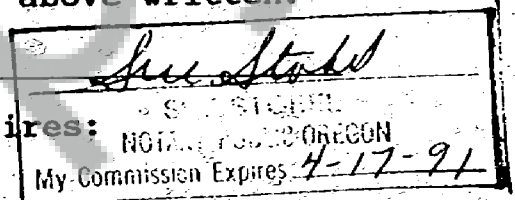 above written.
Sue
ires:
NOTARY PUBLIC-OREGON
My Commission Expires 4-17-91